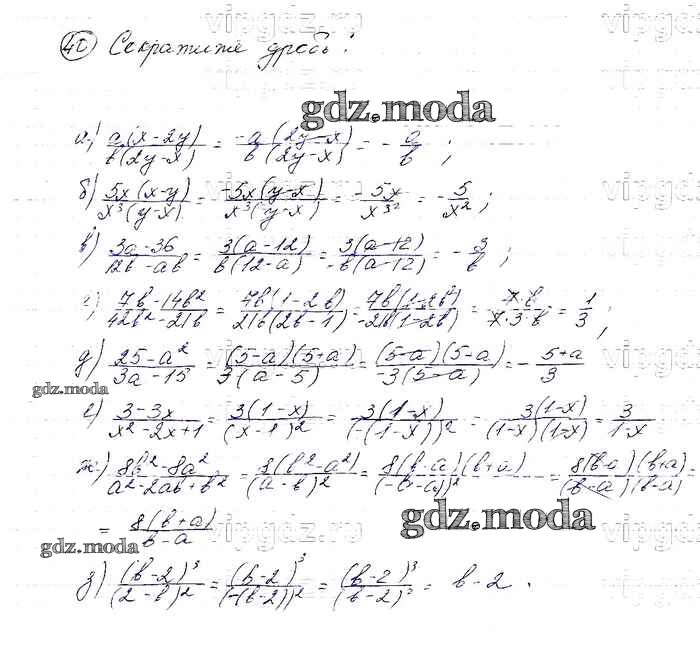 40) Сократите дробь:
gdz.moda
а) a(x-2y)/b(2y-x) = -a(2y-x)/b(2y-x) = -a/b;
б) 5x(x-y)/x³(y-x) = -5x(y-x)/x³(y-x) = -5x/x³² = -5/x²;
в) 3a-36/12b-ab = 3(a-12)/b(12-a) = 3(a-12)/-b(a-12) = -3/b;
г) 7b-14b²/42b²-21b = 7b(1-2b)/21b(2b-1) = 7b(1-2b)/-21b(1-2b) = 7·b/7·3·b = 1/3;
д) 25-a²/3a-15 = (5-a)(5+a)/3(a-5) = (5-a)(5-a)/-3(5-a) = -5+a/3
gdz.moda
е) 3-3x/x²-2x+1 = 3(1-x)/(x-1)² = 3(1-x)/(-(1-x))² = 3(1-x)/(1-x)(1-x) = 3/1-x
ж) 8b²-8a²/a²-2ab+b² = 8(b²-a²)/(a-b)² = 8(b-a)(b+a)/(-(b-a))² = 8(b-a)(b+a)/(b-a)(b-a) =
= 8(b+a)/b-a
gdz.moda
gdz.moda
з) (b-2)³/(2-b)² = (b-2)³/(-(b-2))² = (b-2)³/(b-2)² = b-2.
vipgdz.ru